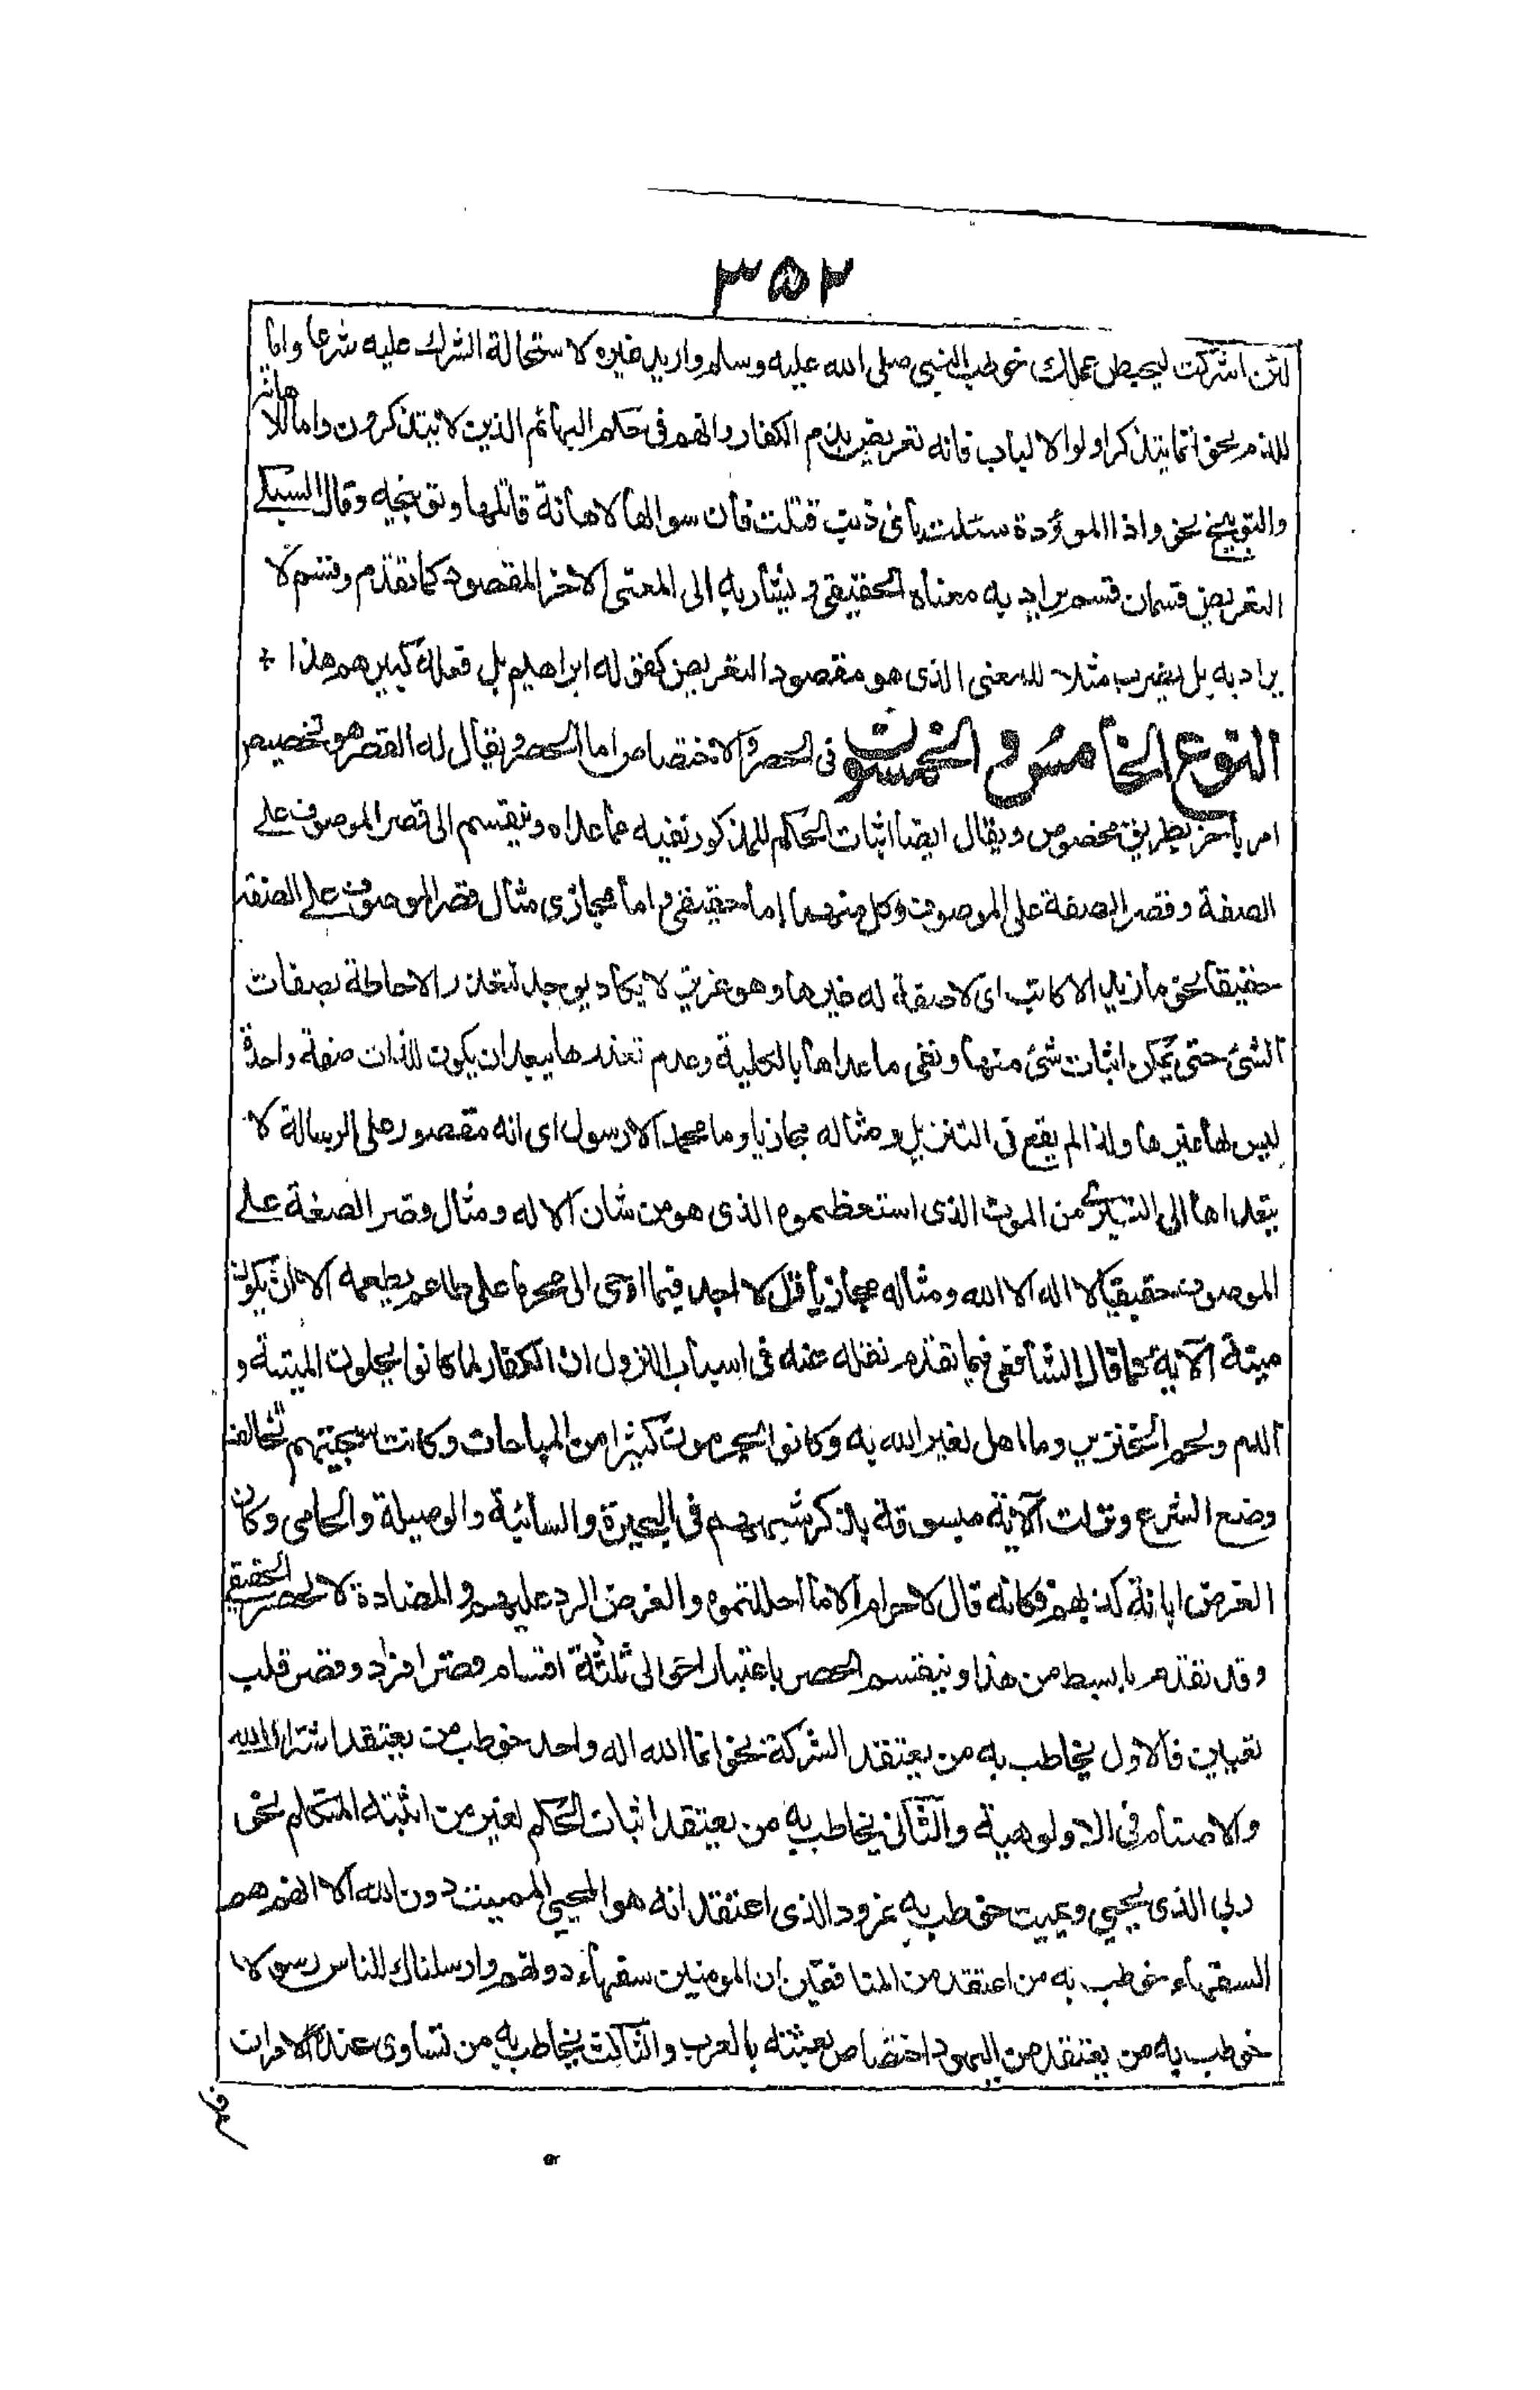 ٣٥٢
لئن اشركت ليحبطن عملك خوطب النبي صلى الله عليه وسلم واريد غيره لاستحالة الشرك عليه شرعا واما
للذم نحو انما يتذكر اولوا الالباب فانه تعريض بذم الكفار وانهم فى حكم البهائم الذين لا يتذكرون واما للاهانة
والتوبيخ نحو واذا الموؤدة سئلت بأى ذنب قتلت فان سوالها لاهانة قاتلها وتوبيخه وقال السبكى
التعريض قسمان قسم يراد به معناه الحقيقى ويشار به الى المعنى الاخر المقصود كما تقدم وقسم لا
يراد به بل يضرب مثلا للمعنى الذى هو مقصود التعريض كقوله ابراهيم بل فعله كبيرهم هذا *
النوع الخامس والخمسون فى الحصر والاختصاص اما الحصر ويقال له القصر هو تخصيص
امر بأخر بطريق مخصوص ويقال ايضا اثبات الحكم للمذكور ونفيه عما عداه وينقسم الى قصر الموصوف على
الصفة وقصر الصفة على الموصوف وكل منهما إما حقيقى واما مجازى مثال قصر الموصوف على الصفة
حقيقيا نحو ما زيد الا كاتب اى لا صفة له غيرها وهو عزيز لا يكاد يوجد لتعذر الاحاطة بصفات
الشئ حتى يمكن اثبات شئ منها ونفى ما عداها بالكلية وعدم تعذرها يبعد ان يكون للذات صفة واحدة
ليس لها غيرها ولذا لم يقع فى التنزيل ومثاله مجازيا وما محمد الا رسول اى انه مقصور على الرسالة لا
يتعداها الى التبرى من الموت الذى استعظموه الذى هو من شان الاله ومثال وقصر الصفة على
الموصوف حقيقيا لا اله الا الله ومثاله مجازيا قل لا اجد فيما اوحى الى محرما على طاعم يطعمه الا ان يكون
ميتة الآية كما قال الشافعى فيما تقدم نقله عنه فى اسباب النزول ان الكفار لما كانوا يحلون الميتة و
الدم ولحم الخنزير وما اهل لغير الله به وكانوا يحرمون كثيرا من المباحات وكانت سجيتهم تخالف
وضع الشرع ونزلت الآية مسوقة بذكر شبههم فى البحيرة والسائبة والوصيلة والحامى وكان
الغرض ابانة كذبهم فكانه قال لا حرام الا ما احللتموه والغرض الرد عليهم والمضادة لا الحصر الحقيقى
وقد تقدم بابسط من هذا وينقسم الحصر باعتبار اخر الى ثلثة اقسام قصر افراد وقصر قلب
تعيين فالاول يخاطب به من يعتقد الشركة نحو انما الله اله واحد خوطب من يعتقد اشتراك الله
والاصنام فى الاولوهية والثانى يخاطب به من يعتقد اثبات الحكم لغير من اثبته المتكلم نحو
ربى الذى يحيى ويميت خوطب به نمرود الذى اعتقد انه هو المحيى المميت دون الله الا انهم هم
السفهاء خوطب به من اعتقد من المنافقين ان المومنين سفهاء دونهم وارسلناك للناس رسولا
خوطب به من يعتقد من اليهود اختصاص بعثته بالعرب والثالث يخاطب به من تساوى عنده الامران